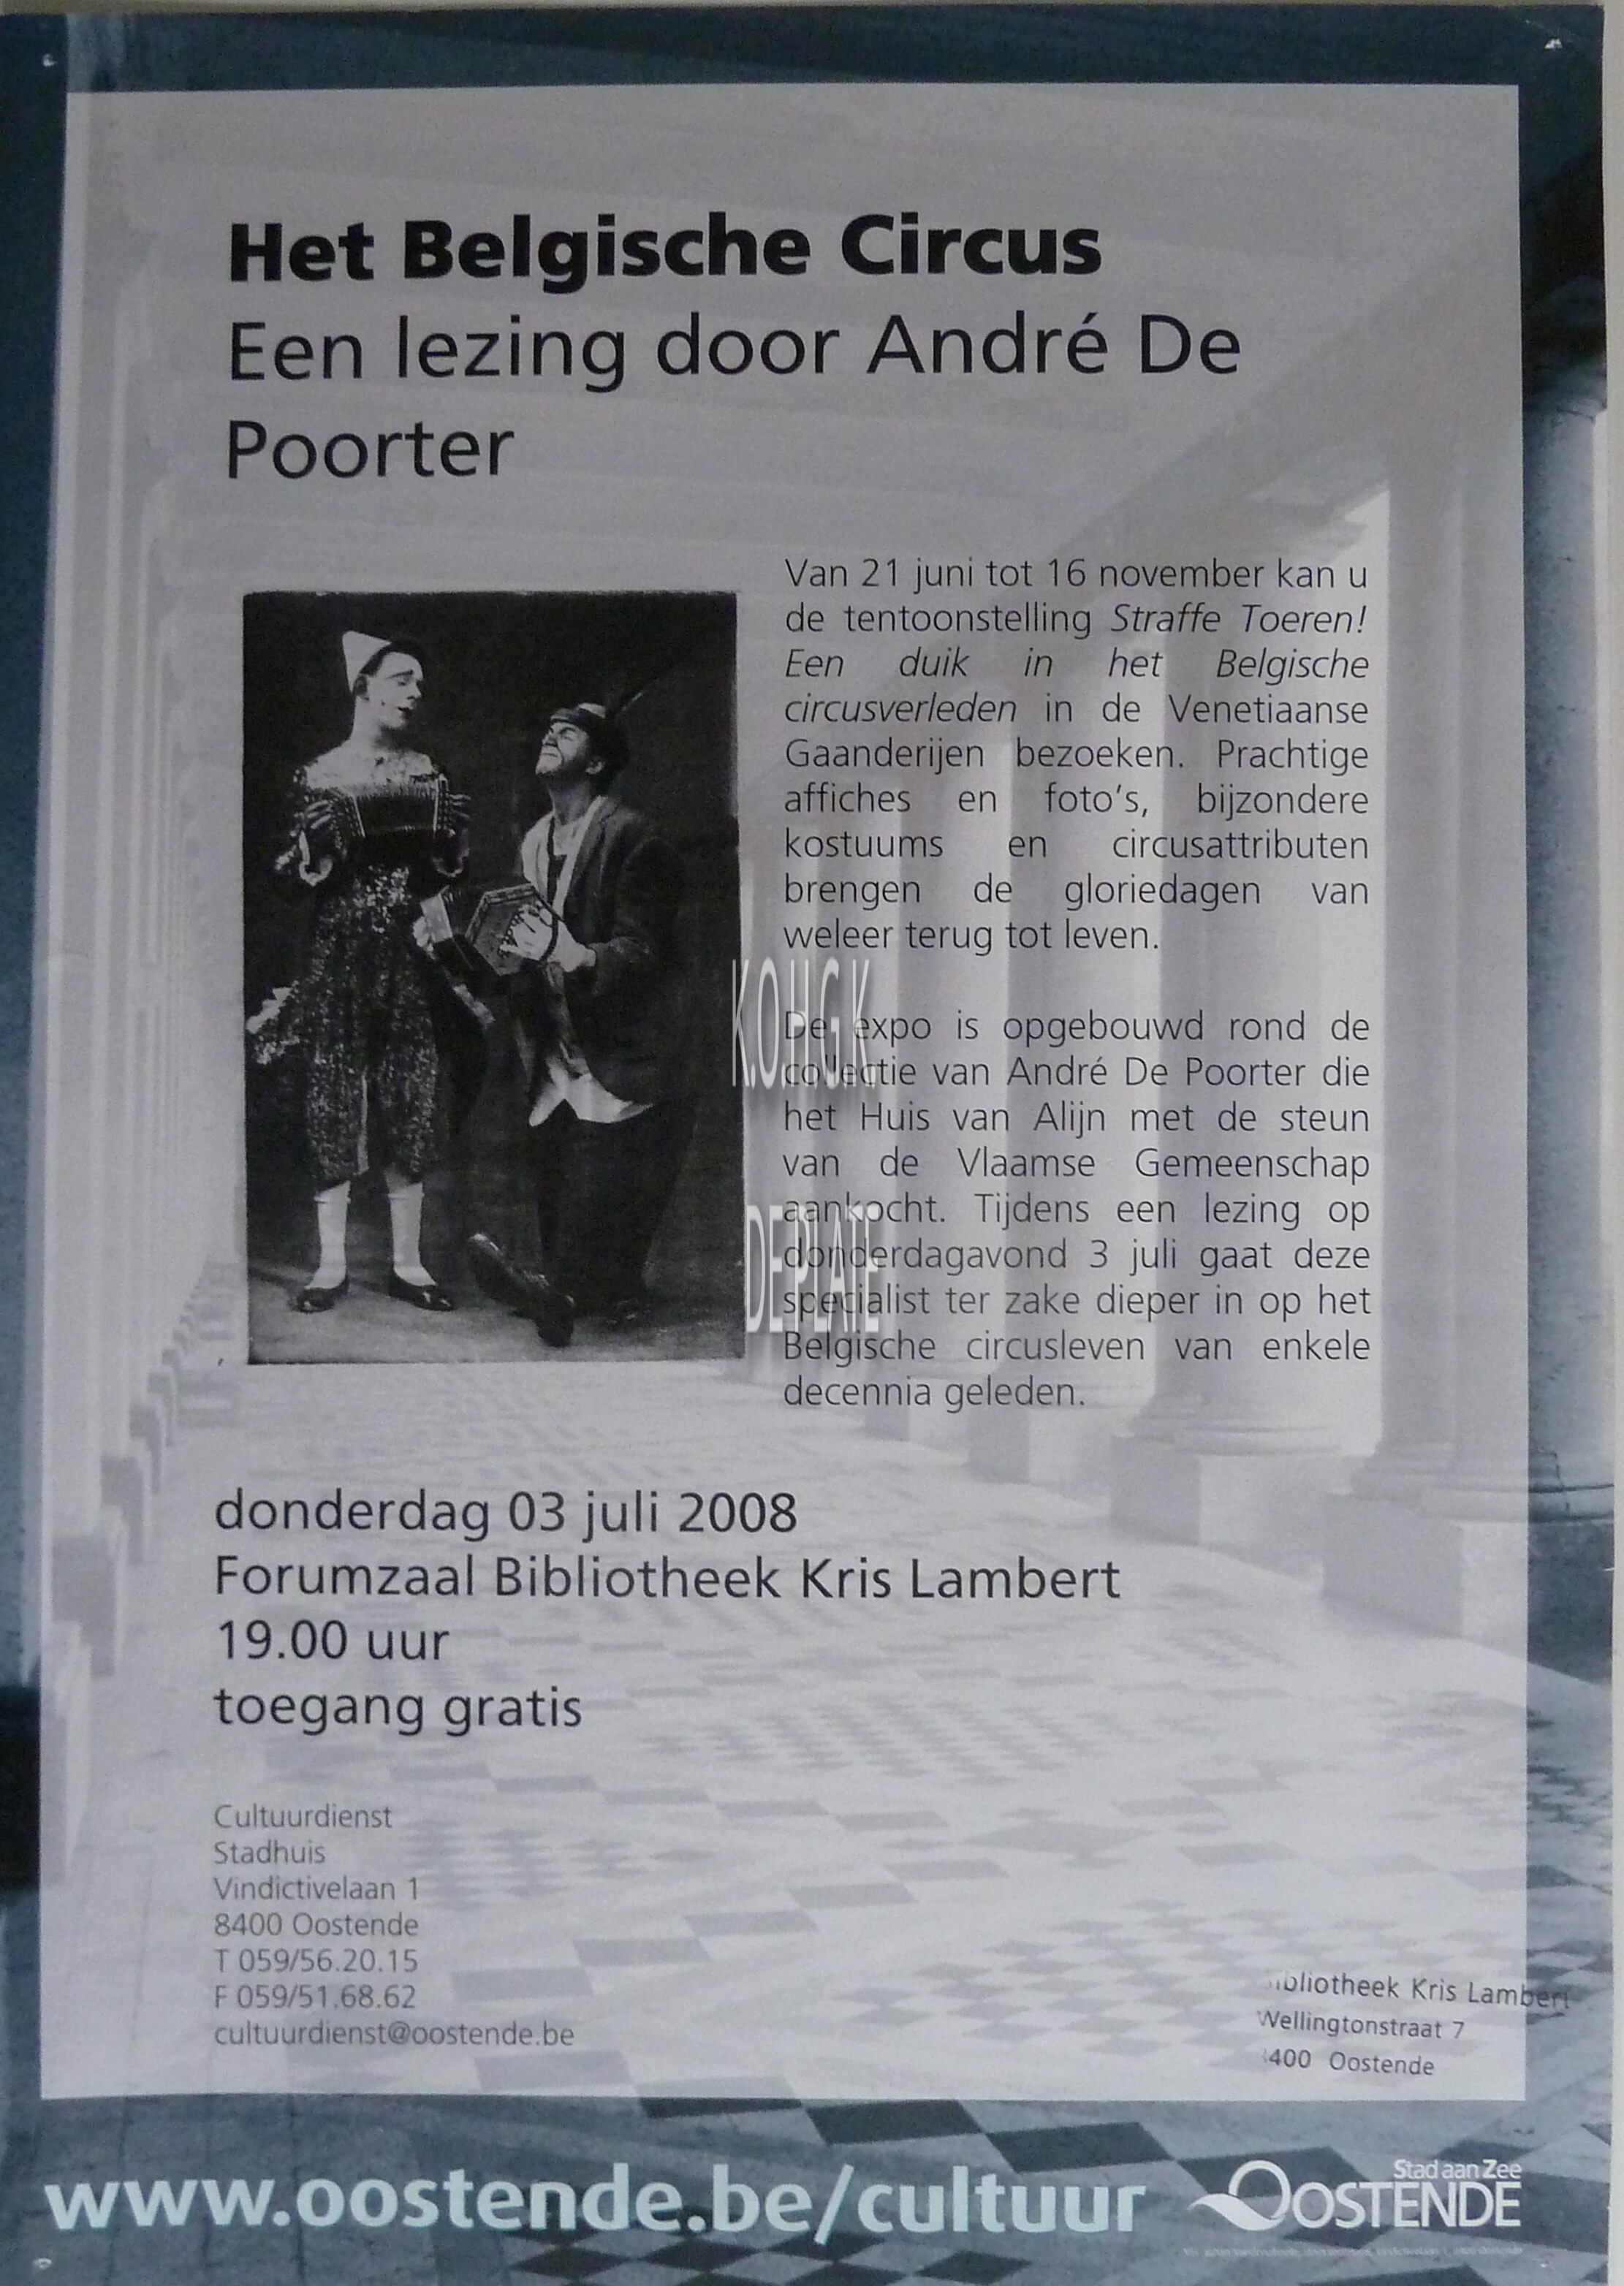 Het Belgische Circus
Een lezing door André De
Poorter
Van 21 juni tot 16 november kan u
de tentoonstelling Straffe Toeren!
Een duik in het Belgische
circusverleden in de Venetiaanse
Gaanderijen bezoeken. Prachtige
affiches en foto's, bijzondere
kostuums en circusattributen
brengen de gloriedagen van
weleer terug tot leven.
K.O.H.G.K
De expo is opgebouwd rond de
collectie van André De Poorter die
het Huis van Alijn met de steun
van de Vlaamse Gemeenschap
aankocht. Tijdens een lezing op
DE PLATE
donderdagavond 3 juli gaat deze
specialist ter zake dieper in op het
Belgische circusleven van enkele
decennia geleden.
donderdag 03 juli 2008
Forumzaal Bibliotheek Kris Lambert
19.00 uur
toegang gratis
Cultuurdienst
Stadhuis
Vindictivelaan 1
8400 Oostende
T 059/56.20.15
F 059/51.68.62
cultuurdienst@oostende.be
bliotheek Kris Lambert
Wellingtonstraat 7
400 Oostende
www.oostende.be/cultuur
Stad aan Zee
OOSTENDE